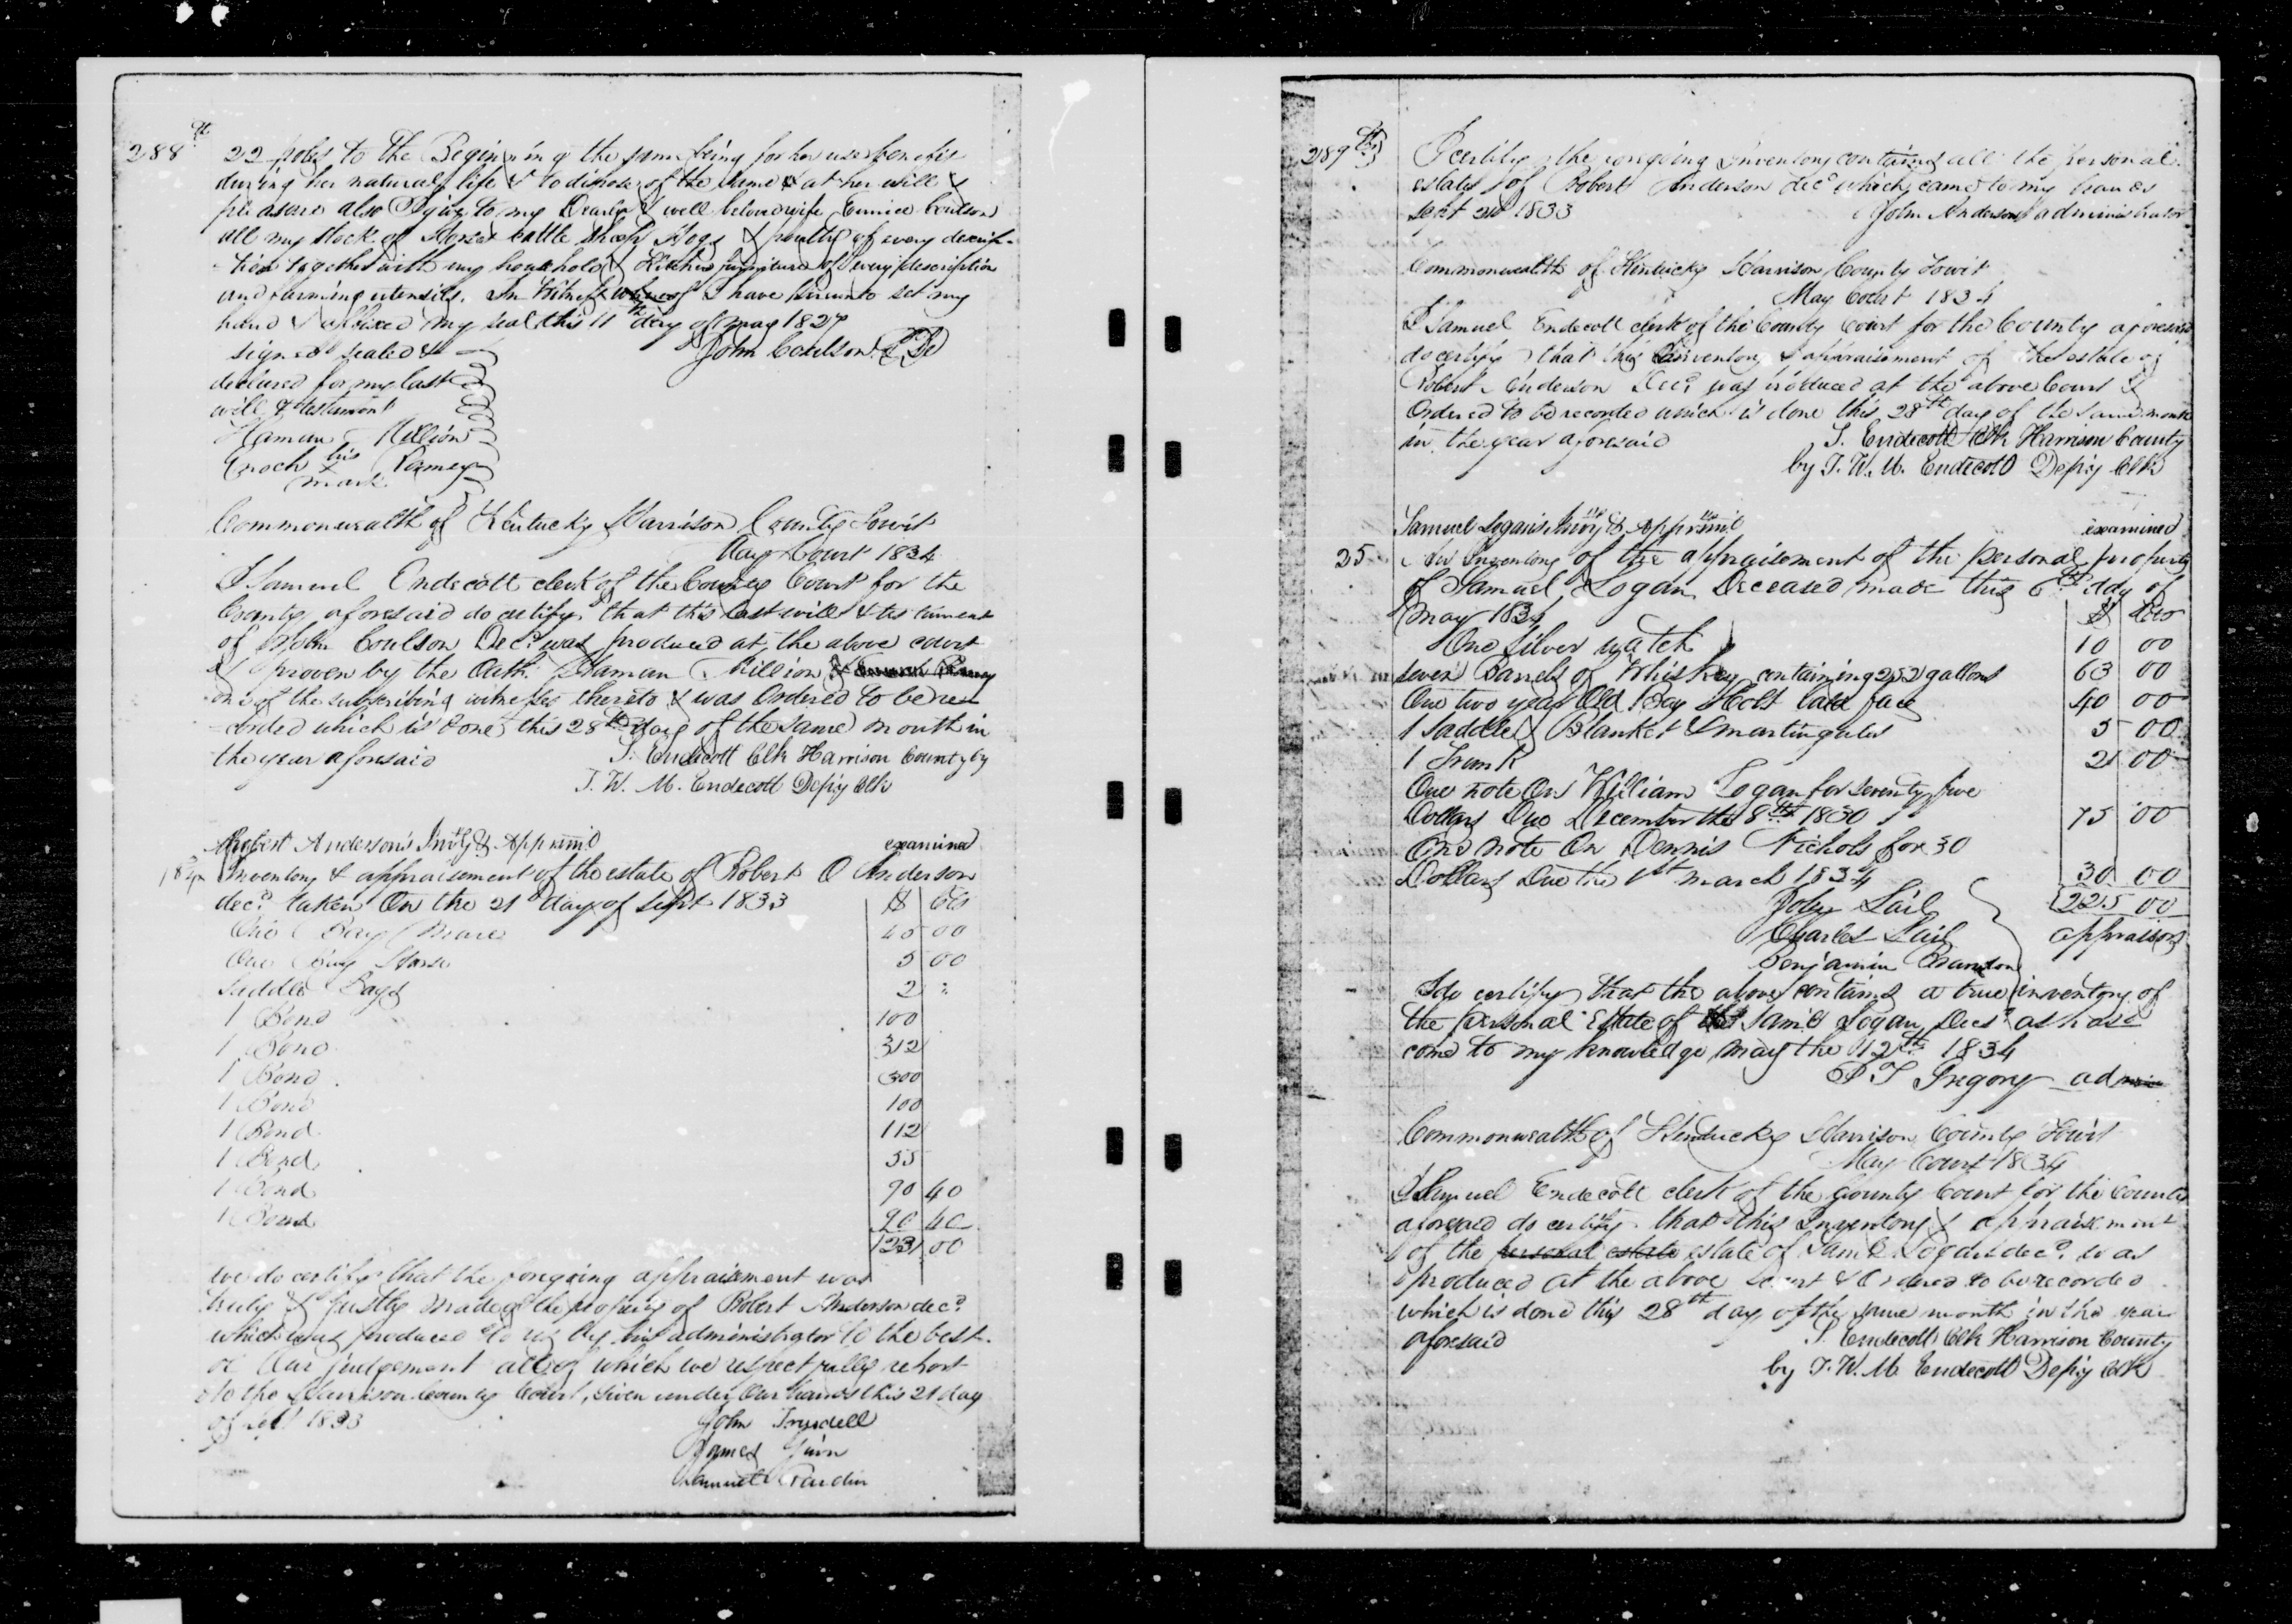 288th
22 poles to the Beginning the same being for her use & benefit
during her natural life & to dispose of the same & at her will &
pleasure also I give to my Dearly & well beloved wife Eunice Coulson
all my stock of Horses Cattle Sheep Hogs & poultry of every descrip-
tion together with my household & Kitchen furniture of every description
and farming utensils. In Witness whereof I have hereunto set my
hand & affixed my seal this 11th day of may 1827
signed sealed & John Coulson
declared for my last
will & testament
Haman Million
Enoch his x mark Ramey
Commonwealth of Kentucky Harrison County Towit
May Court 1834
I Samuel Endecott clerk of the County Court for the
County aforesaid do certify that this last will & testament
of John Coulson Decd was produced at the above court
& proven by the Oath Haman Million &
one of the subscribing witnesses thereto & was Ordered to be re
corded which is done this 28th day of the same month in
the year aforesaid S. Endecott Clk Harrison County by
T. W. M. Endecott Depty Clk
Robert Anderson's Invty & Apprmt examined
Inventory & appraisement of the estate of Robert O Anderson
decd taken On the 21st day of Sept 1833 $ Cts
One Bay Mare 45 00
One Bay Horse 5 00
Saddle Bags 2 "
1 Bond 100
1 Bond 312
1 Bond 300
1 Bond 100
1 Bond 112
1 Bond 55
1 Bond 90 40
1 Bond 90 40
00
we do certify that the foregoing appraisement was
truly & justly made of the property of Robert Anderson decd
which was produced to us by his administrator to the best
of Our judgement all of which we respectfully report
to the Harrison County Court, Given under Our hands this 21 day
of Sept 1833 John
James
Samuel
289th
I certify the foregoing Inventory contains all the personal
estate of Robert Anderson decd which came to my hands
Sept 21st 1833 John Anderson administrator
Commonwealth of Kentucky Harrison County Towit
May Court 1834
I Samuel Endecott clerk of the County Court for the County aforesaid
do certify that this Inventory & appraisement of the estate of
Robert Anderson Decd was produced at the above Court &
Ordered to be recorded which is done this 28th day of the same month
in the year aforesaid S. Endecott Clk Harrison County
by T. W. M. Endecott Depty Clk
Samuel Logan's Invty & Apprmt examined
25 An Inventory of the appraisement of the personal property
of Samuel Logan Deceased made this 6th day of
may 1834 $ Cts
One Silver watch 10 00
seven Barrels of Whiskey containing 252 gallons 63 00
One two year Old Bay Colt bald face 40 00
1 Saddle & Blanket & martingales 5 00
1 Trunk 2 00
One note On William Logan for seventy five
Dollars Due December the 8th 1830 75 00
One note On Dennis Nichols for 30
Dollars Due the 1st march 1834 30 00
Joby Lail 225 00
Charles Lail appraisers
Benjamin Brandon
I do certify that the above contains a true inventory of
the personal Estate of Saml Logan Decd as has
come to my knowledge may the 12th 1834
P T Gregory admin
Commonwealth of Kentucky Harrison County Towit
May Court 1834
I Samuel Endecott clerk of the County Court for the County
aforesaid do certify that this Inventory & appraisement
of the personal estate estate of Saml Logan decd was
produced at the above Court & Ordered to be recorded
which is done this 28th day of the same month in the year
aforesaid S. Endecott Clk Harrison County
by T. W. M. Endecott Depty Clk